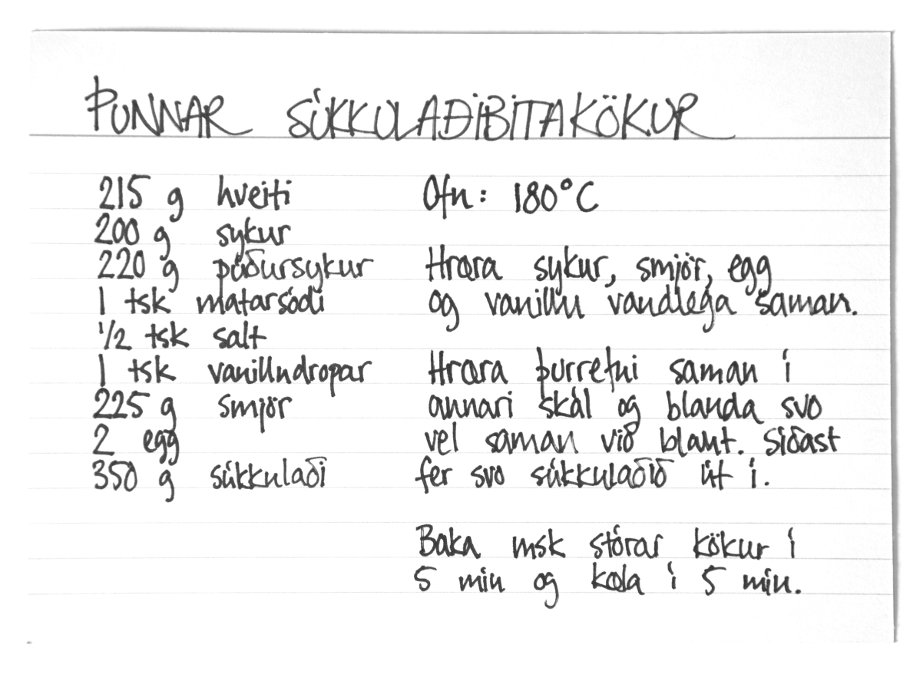 ÞUNNAR SÚKKULAÐIBITAKÖKUR
215 g hveiti
200 g sykur
220 g púðursykur
1 tsk matarsódi
1/2 tsk salt
1 tsk vanilludropar
225 g smjör
2 egg
350 g súkkulaði
Ofn: 180°C
Hræra sykur, smjör, egg
og vanillu vandlega saman.
Hræra þurrefni saman í
annari skál og blanda svo
vel saman við blaut. Síðast
fer svo súkkulaðið út í.
Baka msk stórar kökur í
5 mín og kæla í 5 mín.